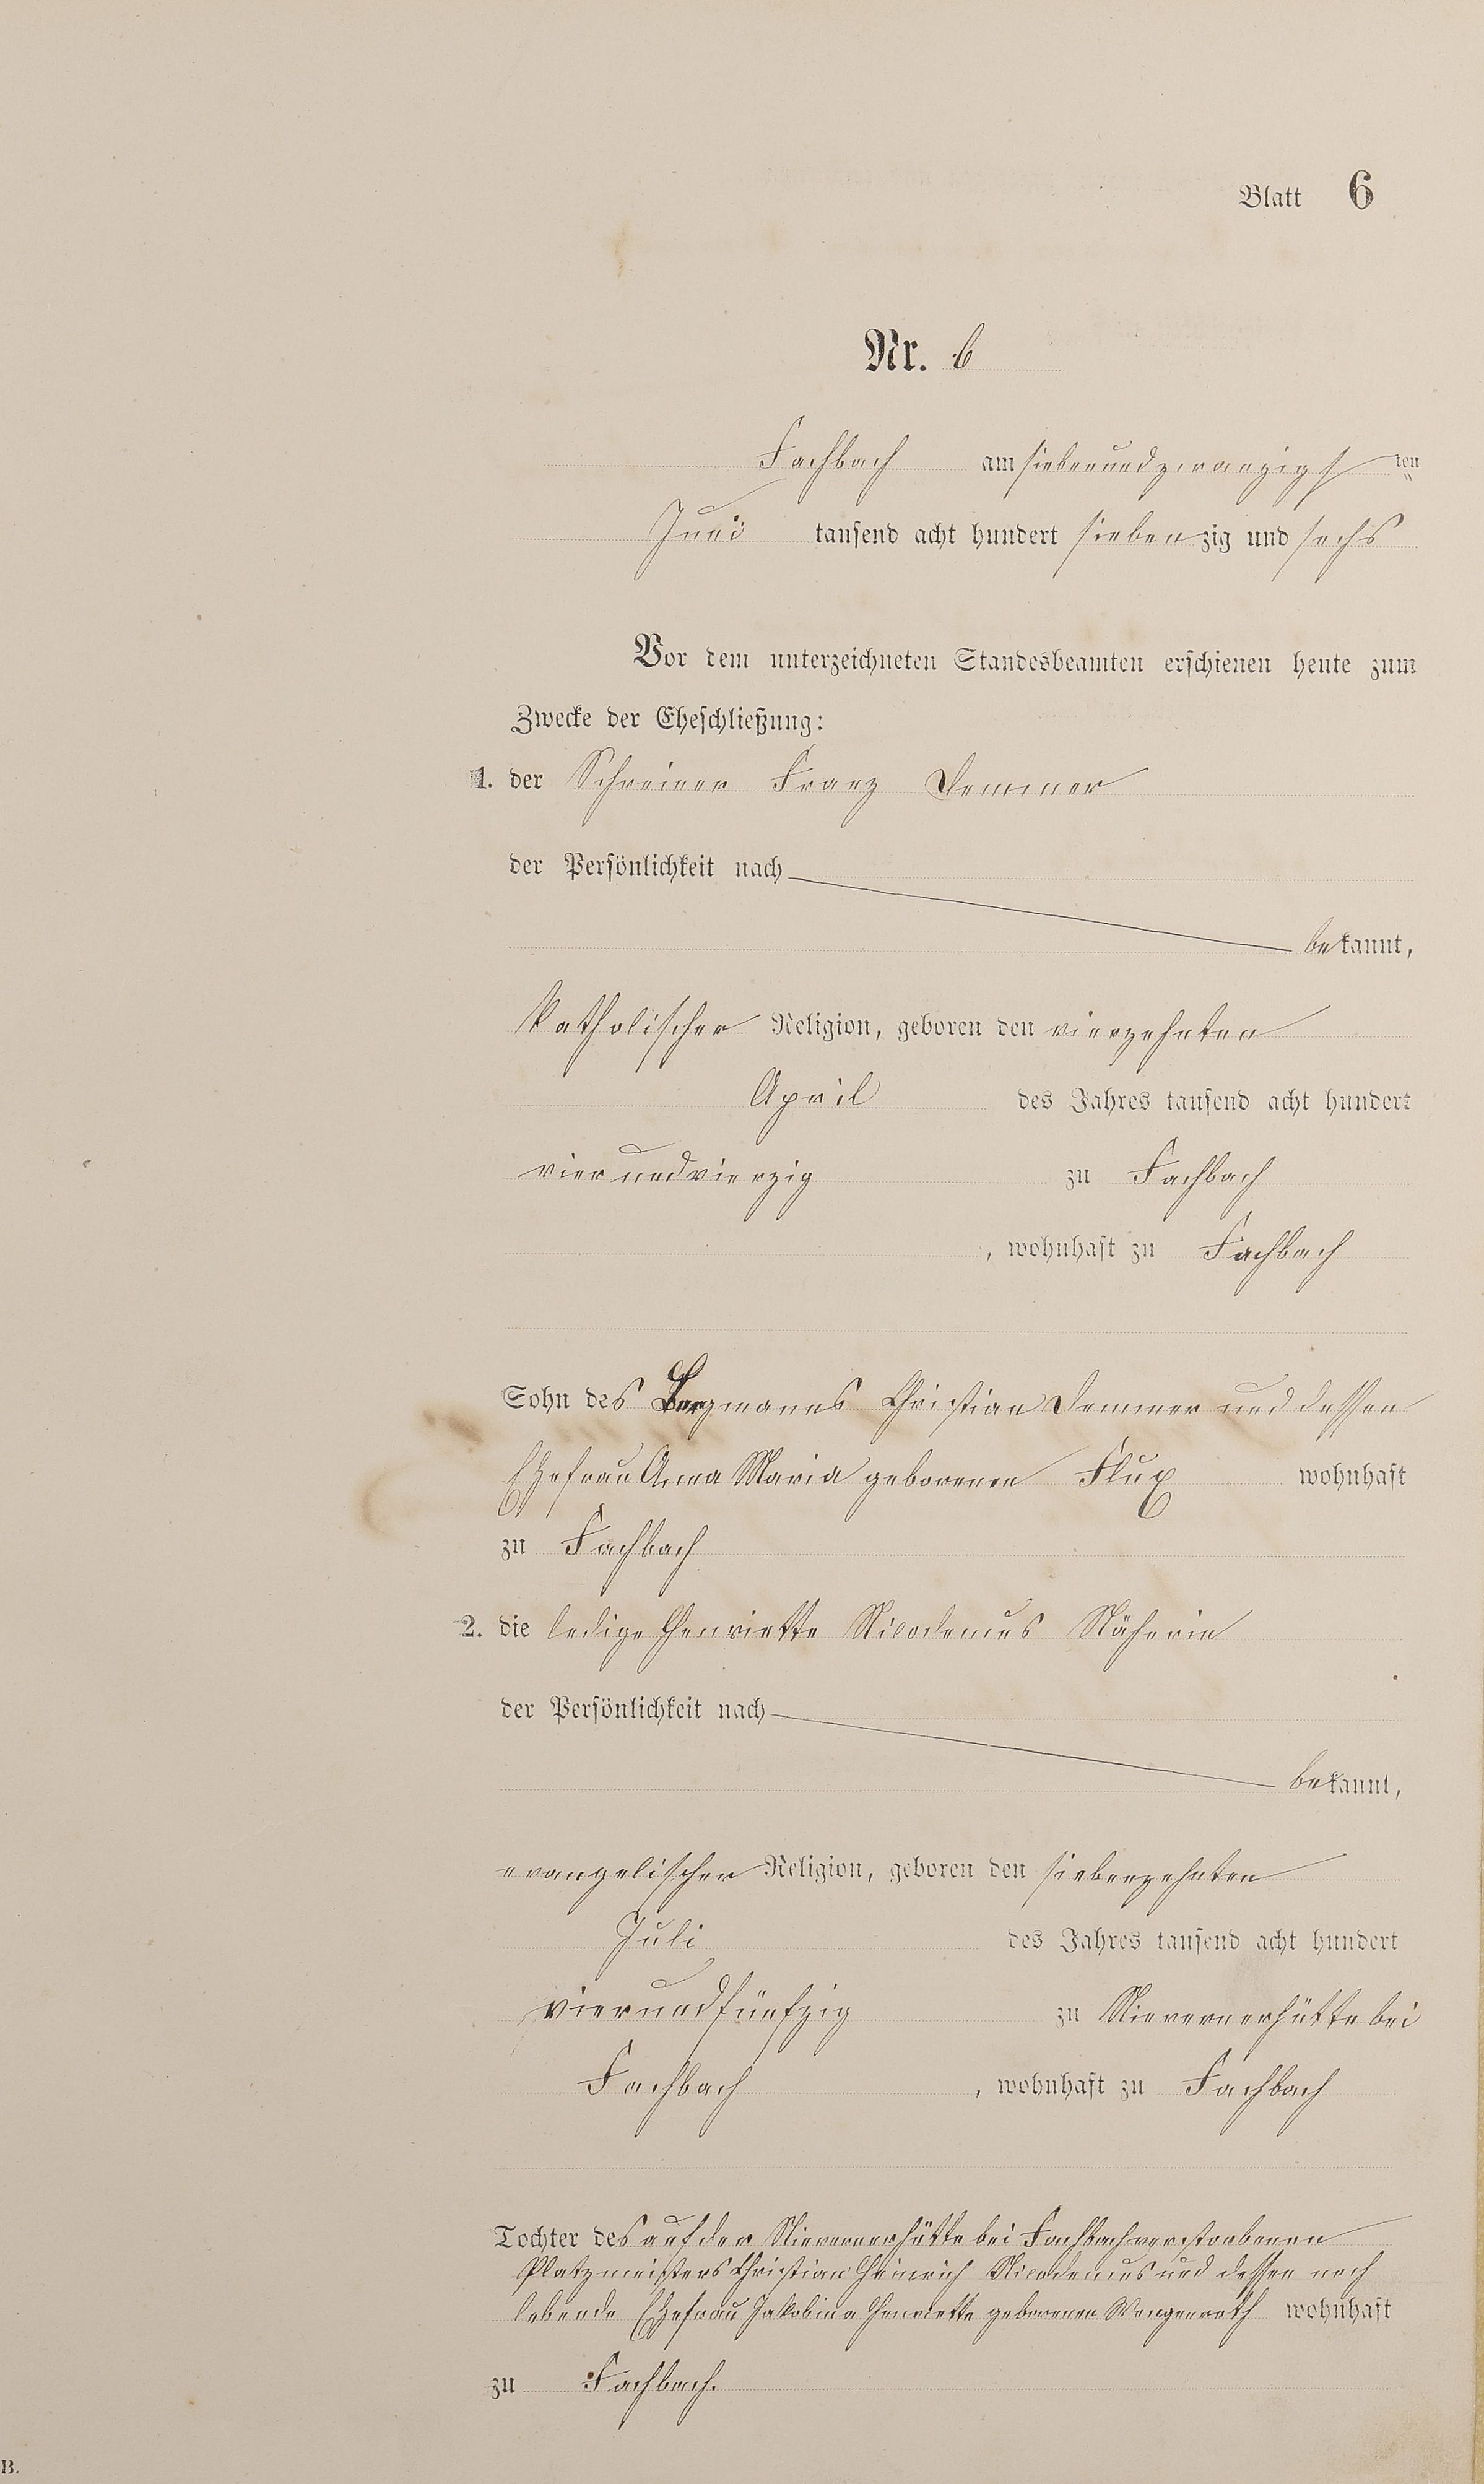 Blatt 6
Nr. 6
Fachbach am siebenundzwanzigsten
Juni tausend acht hundert siebenzig und sechs
Vor dem unterzeichneten Standesbeamten erschienen heute zum
Zwecke der Eheschließung:
1. der Schreiner Franz Demmer
der Persönlichkeit nach
bekannt,
Katholischer Religion, geboren den vierzehnten
April des Jahres tausend acht hundert
vierundvierzig zu Fachbach
, wohnhaft zu Fachbach
Sohn des Bergmanns Christian Demmer und dessen
Ehefrau Anna Maria geborenen Flux wohnhaft
zu Fachbach
2. die ledige Henriette Nicodemus Näherin
der Persönlichkeit nach
bekannt,
evangelischer Religion, geboren den siebenzehnten
Juli des Jahres tausend acht hundert
vierundfünfzig zu Nievernerhütte bei
Fachbach , wohnhaft zu Fachbach
Tochter des auf der Nievernerhütte bei Fachbach verstorbenen
Platzmeisters Christian Heinrich Nicodemus und dessen noch
lebende Ehefrau Jakobina Henriette geborenen Wengenroth wohnhaft
zu Fachbach.
B.